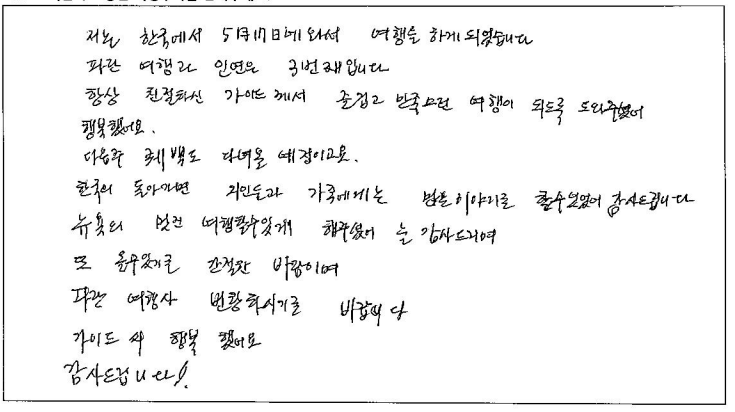 저는 한국에서 5月17日에 와서 여행을 하게 되었습니다
파란 여행과 인연은 3번째입니다
항상 친절하신 가이드께서 즐겁고 만족스런 여행이 되도록 도와주셨어
행복했어요.
다음주 퀘백도 다녀올 예정이고요.
한국의 돌아가면 지인들과 가족에게는 많은 이야기로 할수있었어 감사드립니다
뉴욕의 멋진 여행할수있게 해주셨어 늘 감사드리며
또 올수있기를 간절한 바람이며
파란 여행사 번창하시기를 바랍니다
가이드 씨 행복 했어요
감사드립니다!